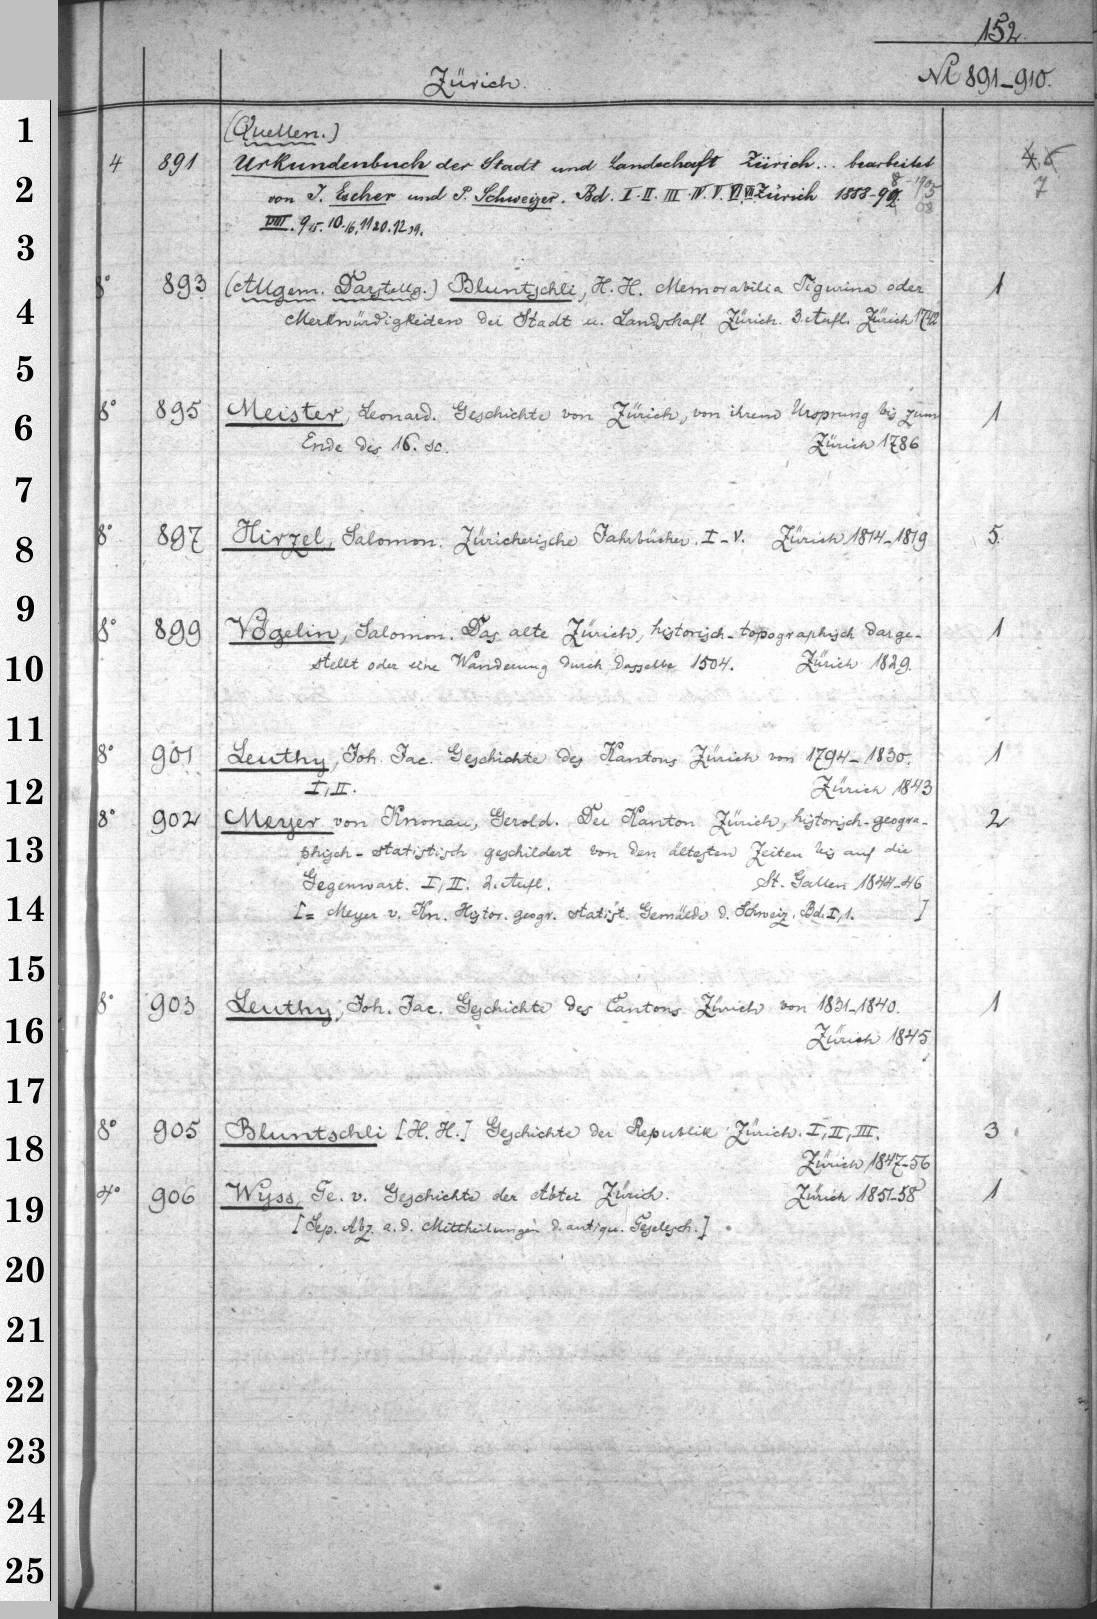 152.
Zürich.
№ 891–910.
1
(Quellen.)
4 891 Urkundenbuch der Stadt und Landschaft Zürich... bearbeitet
2
von J. Escher und P. Schweizer. Bd. I. II. III. IV. V. VI. VII Zürich 1888–92. 7
VIII.
3
8° 893 (Allgem. Darstellg.) Bluntschli, H. H. Memorabilia Tigurina oder 1
4
Merkwürdigkeiten der Stadt u. Landschaft Zürich. 3. Aufl. Zürich 1742
5
8° 895 Meister, Leonard. Geschichte von Zürich, von ihrem Ursprung bis zum 1
6
Ende des 16. sc. Zürich 1786
7
8° 897 Hirzel, Salomon. Züricherische Jahrbücher. I–V. Zürich 1814–1819 5.
8
9
8° 899 Vögelin, Salomon. Das alte Zürich, historisch-topographisch darge- 1
10
stellt oder eine Wanderung durch dasselbe 1504. Zürich 1829.
11
8° 901 Leuthy, Joh. Jac. Geschichte des Kantons Zürich von 1794–1830. 1
12
I, II. Zürich 1843
8° 902 Meyer von Knonau, Gerold. Der Kanton Zürich, historisch-geogra- 2
13
phisch-statistisch geschildert von den ältesten Zeiten bis auf die
Gegenwart. I, II. 2. Aufl. St. Gallen 1844–46
14
[= Meyer v. Kn. Histor. geogr. statist. Gemälde d. Schweiz. Bd. I, 1. ]
15
8° 903 Leuthy, Joh. Jac. Geschichte des Cantons Zürich von 1831–1840. 1
16
Zürich 1845
17
8° 905 Bluntschli [H. H.] Geschichte der Republik Zürich. I, II, III. 3
18
Zürich 1847–56
4° 906 Wyss, Ge. v. Geschichte der Abtei Zürich. Zürich 1851–58 1
19
[Sep. Abz. a. d. Mittheilungen d. antiqu. Gesellsch.]
20
21
22
23
24
25